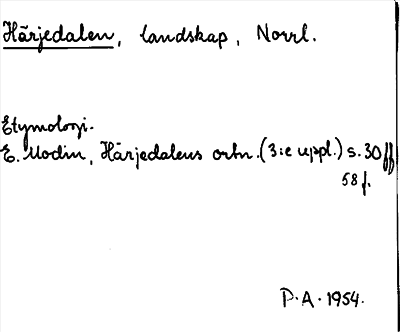 Härjedalen, landskap, Norrl.
Etymologi.
E. Modin, Härjedalens ortn. (3:e uppl.) s. 30 ff
58 f.
P. A. 1954.